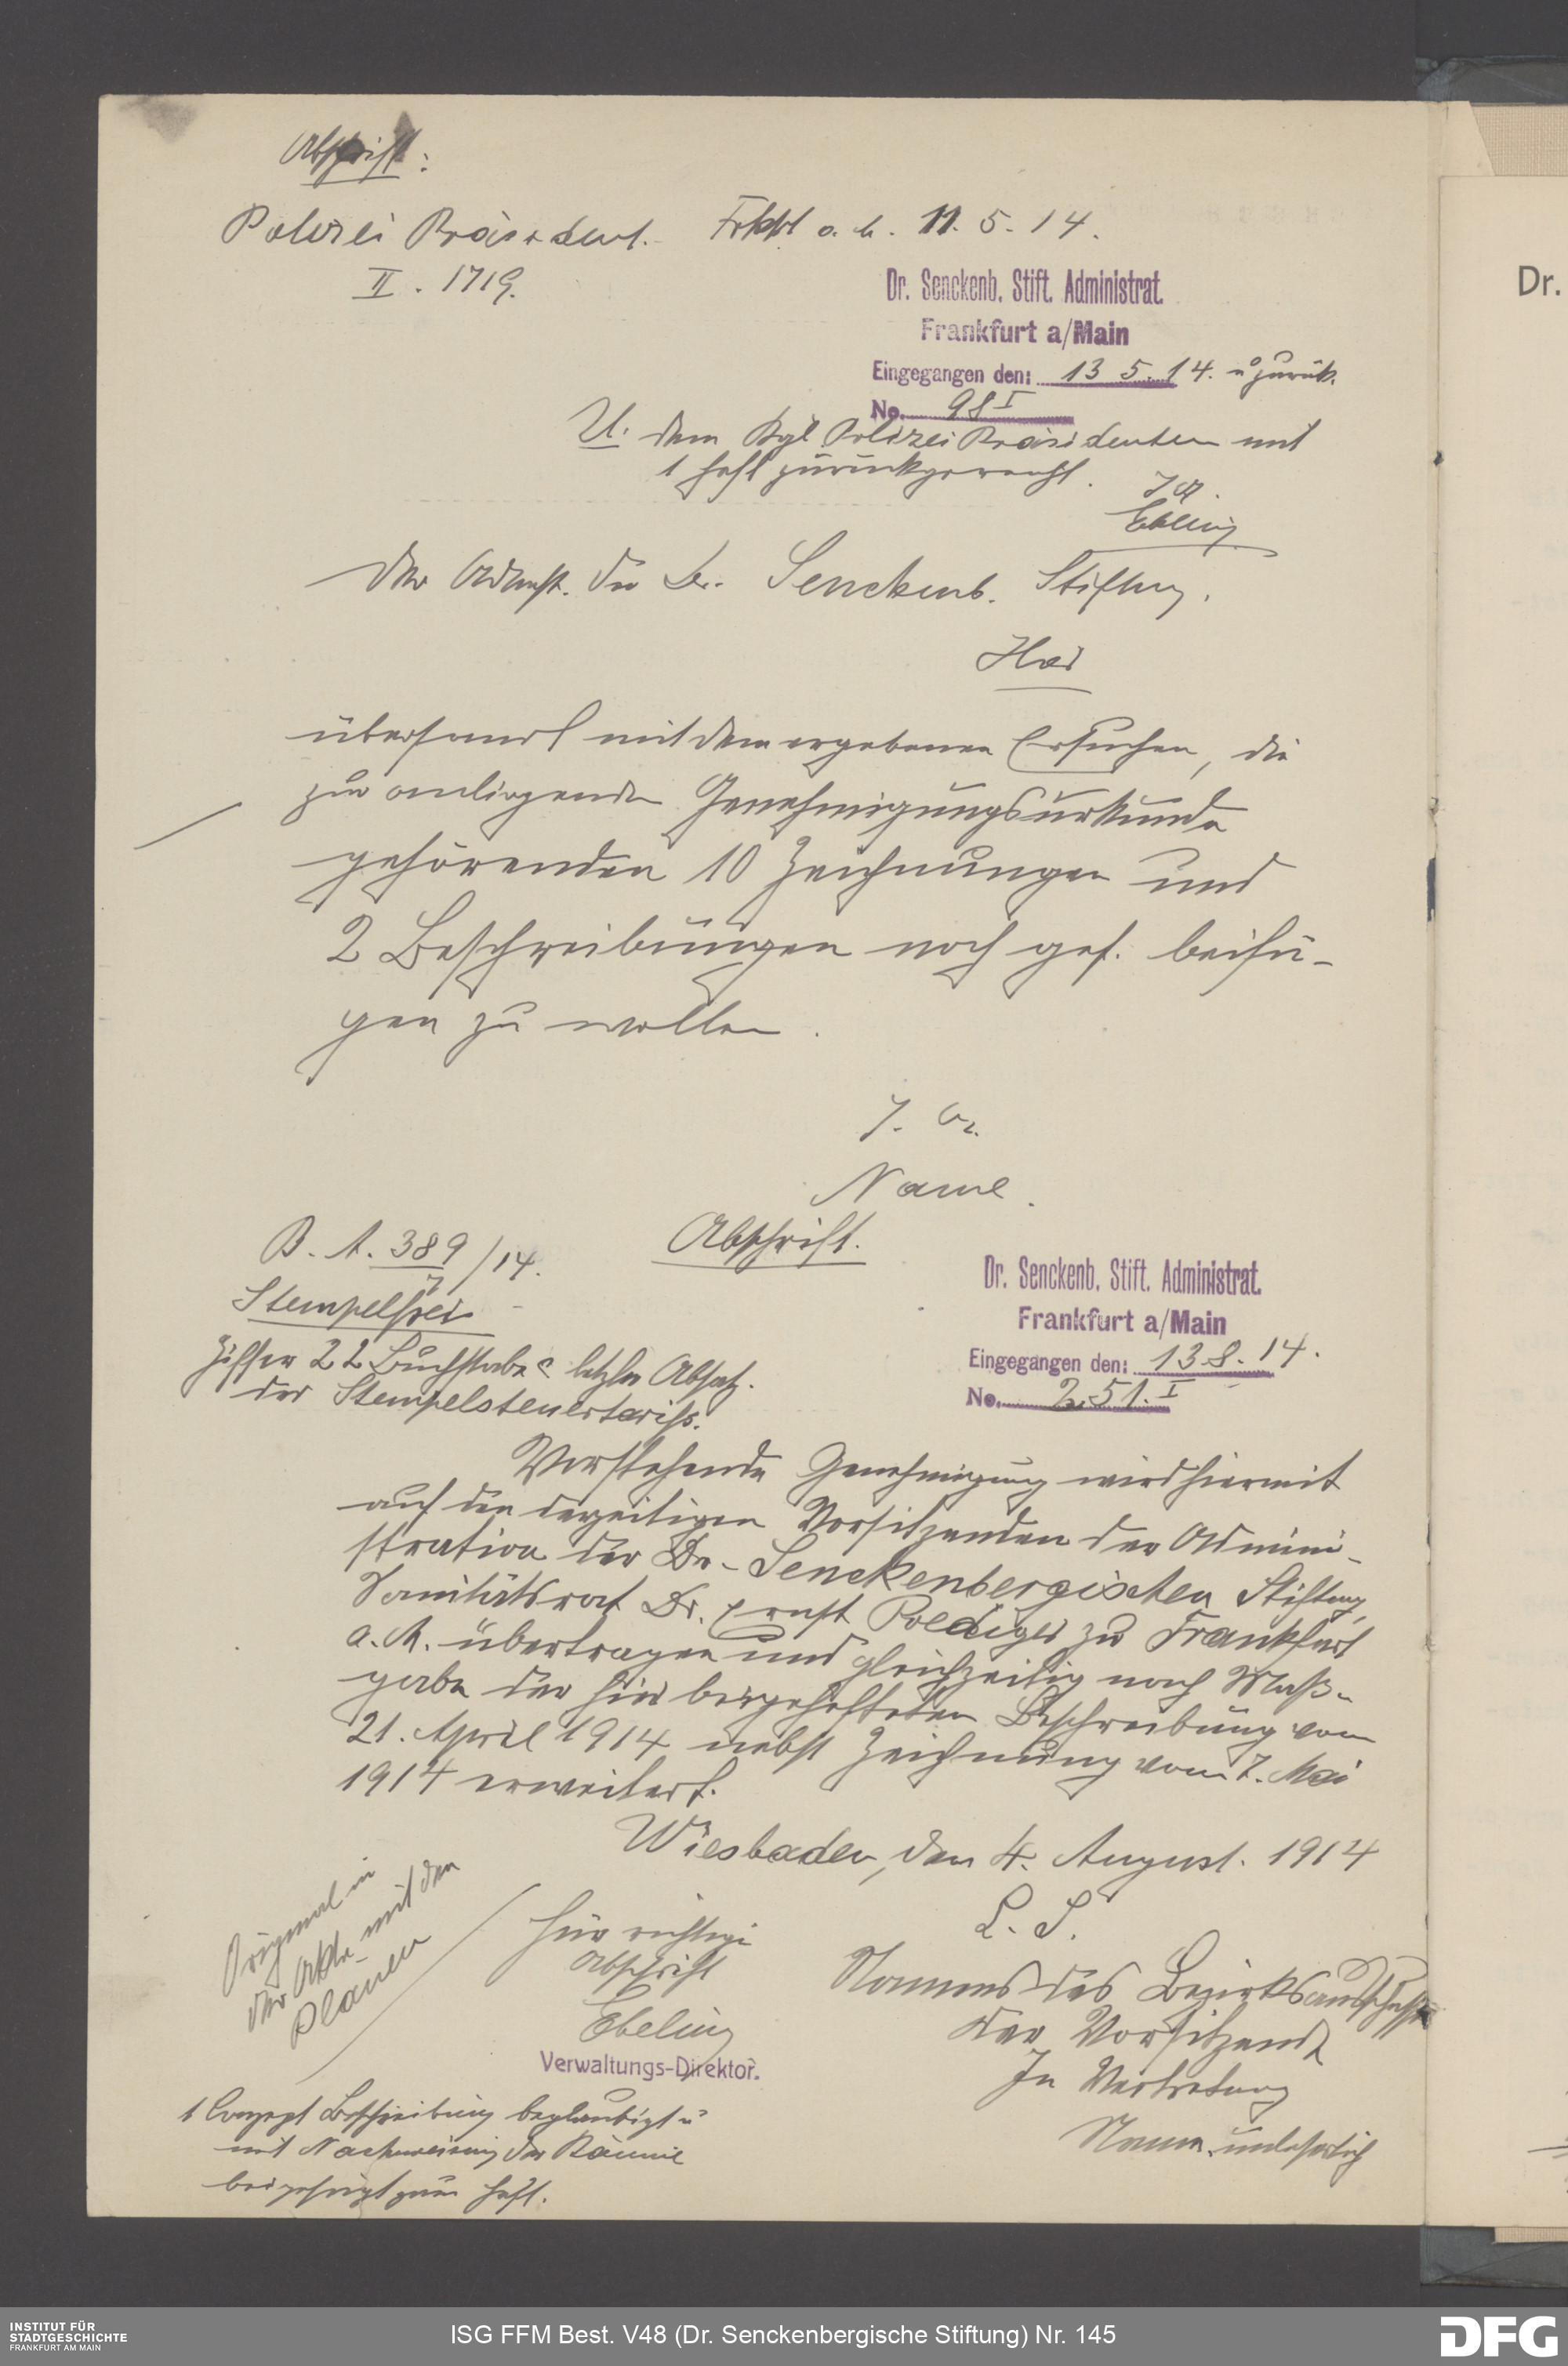 Abschrift:
Polizei Präsident. Frkft a. M. 11. 5. 14.
II. 1719.
Dr. Senckenb. Stift. Administrat.
Frankfurt a/Main
Eingegangen den: 13 5. 14. u zurück.
No. 98 I
U. dem Kgl Polizei Präsidenten mit
1 Heft zurückgereicht.
I A.
Ebeling
Der Admst. der Dr. Senckenb. Stiftung.
Hier
übersandt mit dem ergebenen Ersuchen, die
zur anliegenden Genehmigungsurkunde
gehörenden 10 Zeichnungen und
2 Beschreibungen noch gef. beifü-
gen zu wollen.
I. V.
Name.
Abschrift.
B. A. 389/14.
7
Stempelfrei
Ziffer 22 Buchstabe c letzter Absatz.
des Stempelsteuertarifs.
Dr. Senckenb. Stift. Administrat.
Frankfurt a/Main
Eingegangen den: 13. 8. 14.
No. 251. I
Vorstehende Genehmigung wird hiermit
auf den derzeitigen Vorsitzenden der Admini-
stration der Dr. Senckenbergischen Stiftung,
Sanitätsrat Dr. Ernst Roediger zu Frankfurt
a. M. übertragen und gleichzeitig nach Maß-
gabe der hier beigehefteten Beschreibung vom
21. April 1914 nebst Zeichnung vom 7. Mai
1914 erweitert.
Wiesbaden, den 4. August. 1914
L. S.
Namens des Bezirksausschusses
Der Vorsitzende
In Vertretung
Name unleserlich
Original in
der Akte mit den
Planen
Für richtige
Abschrift
Ebeling
Verwaltungs-Direktor.
1 Conzept Beschreibung beglaubigt u
mit Nachweisung der Räume
beigefügt zum Heft.
Dr.
INSTITUT FÜR
STADTGESCHICHTE
FRANKFURT AM MAIN
ISG FFM Best. V48 (Dr. Senckenbergische Stiftung) Nr. 145
DFG